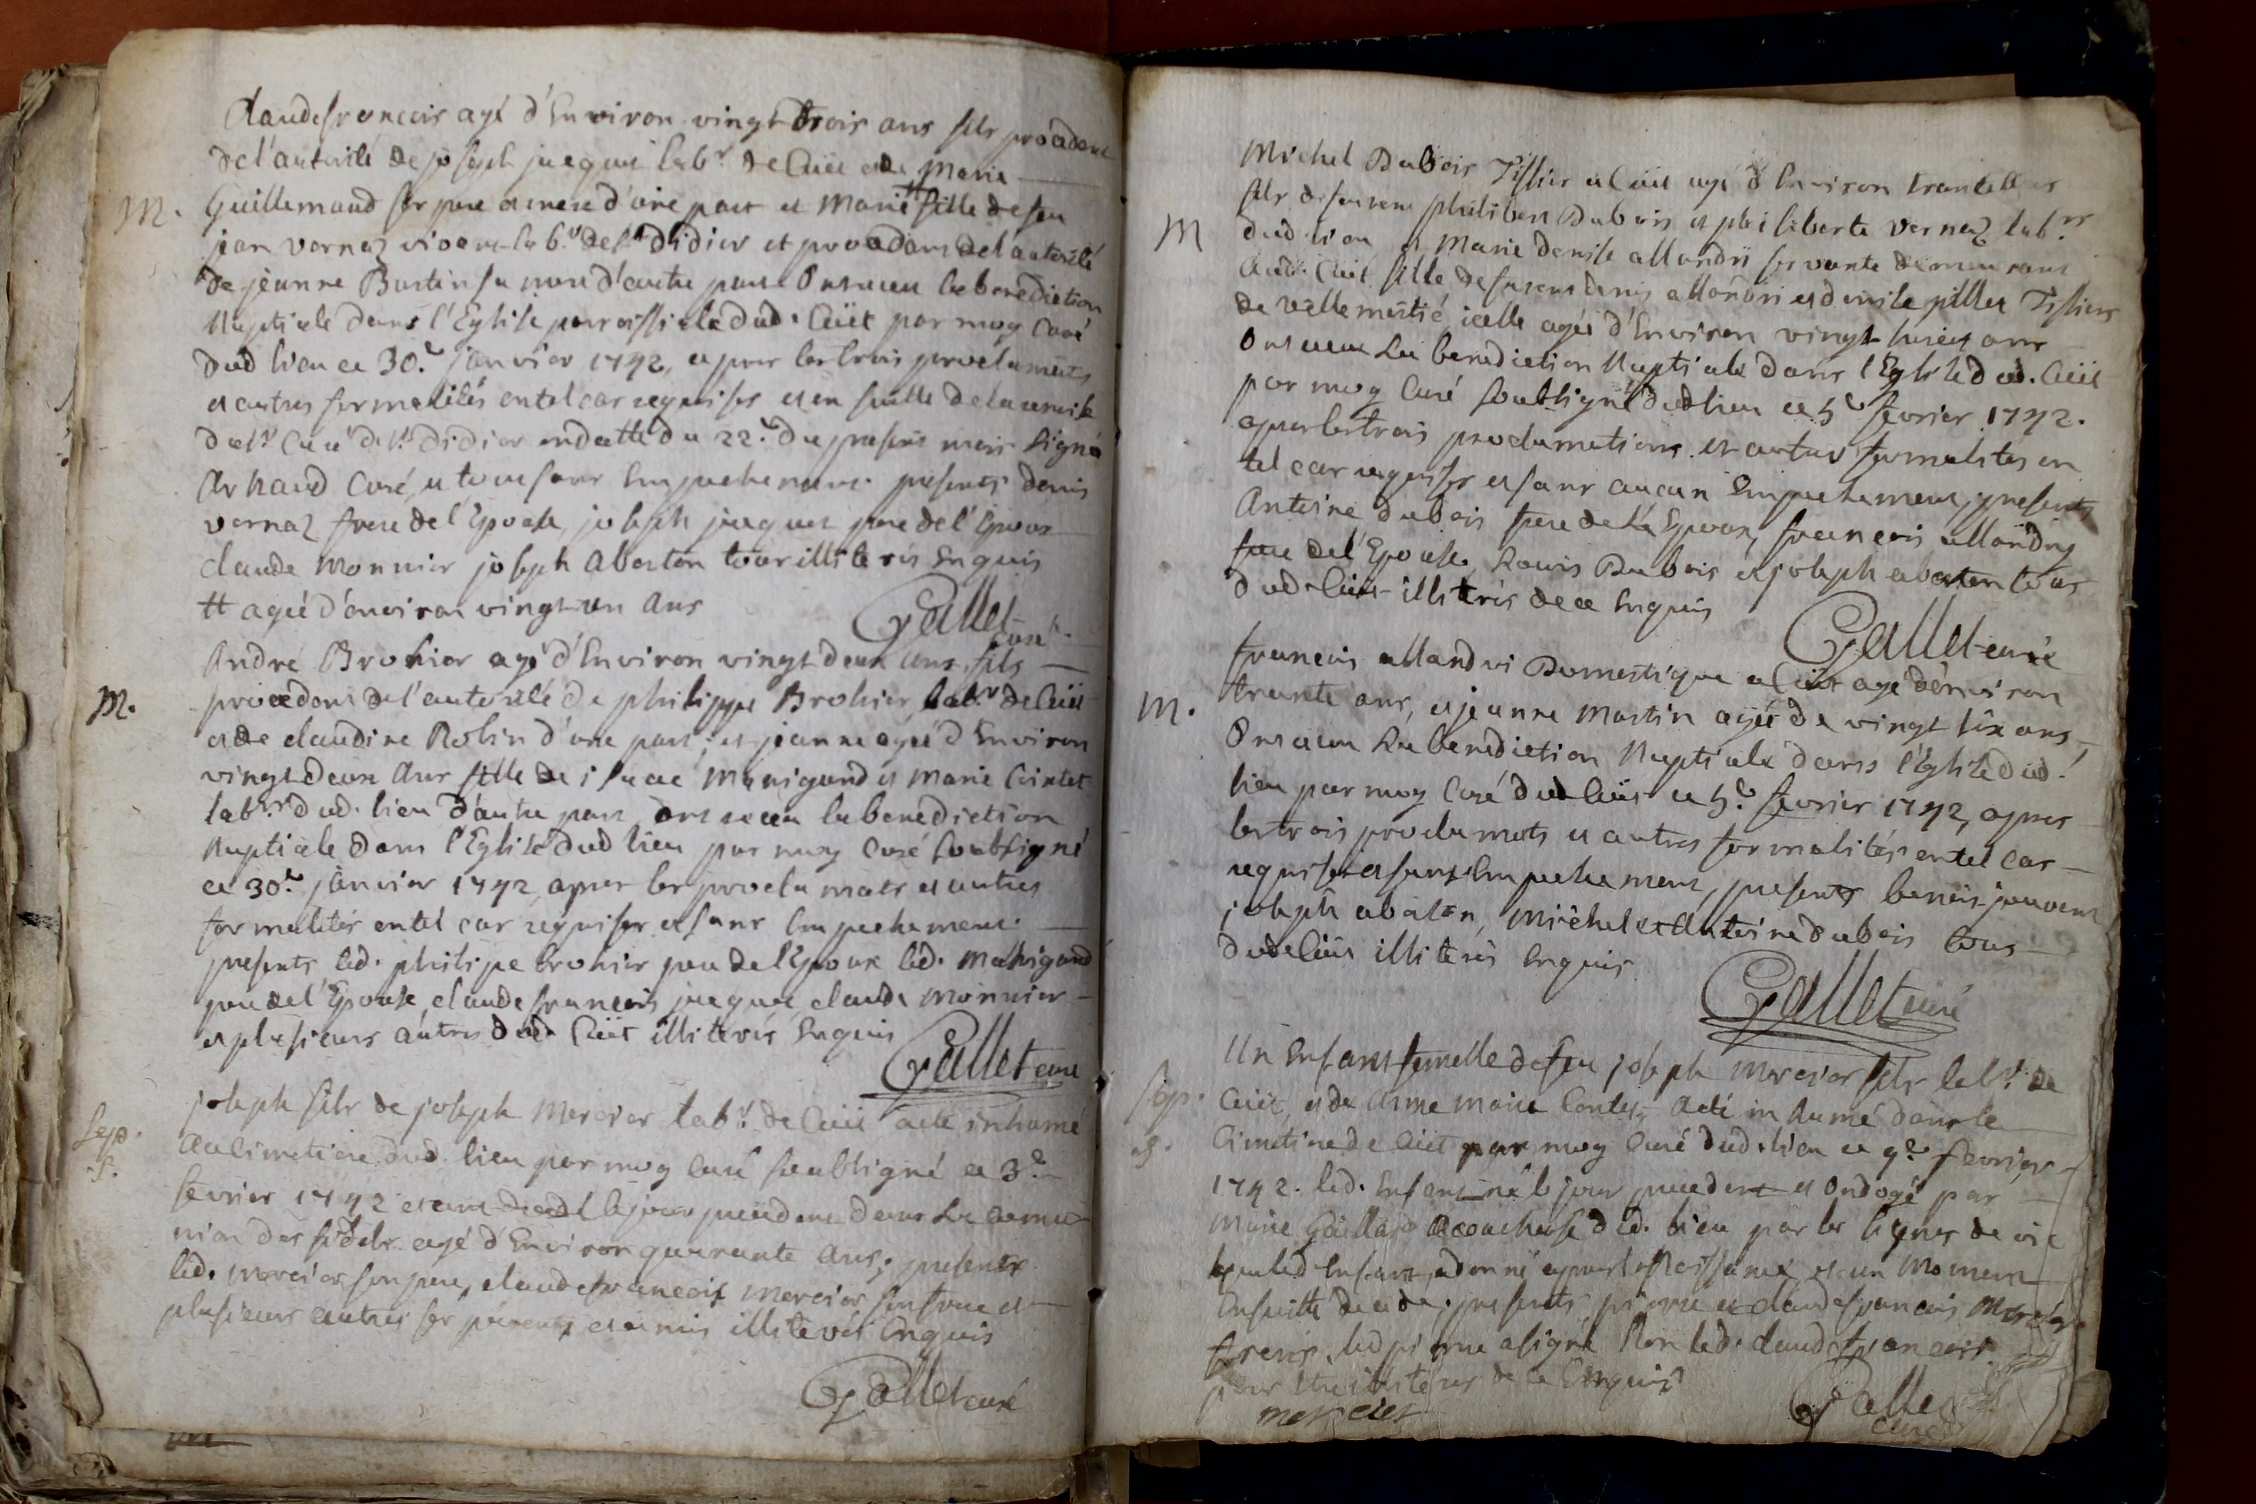 Claude francois agé d'Environ vingt trois ans fils procedant
de l'autorité de joseph jacquet labr. de Cuët et de Marie
M. Guillemaud ses pere et mere d'une part et Marie tt fille de feu
jean vernaz vivant labr. de st. Didier et procedant de l'autorité
de jeanne Bustin sa mere d'autre part Ont receu la benediction
Nuptiale dans l'Eglise paroissiale dud. Cuët par moy Curé
dud lieu ce 30.e janvier 1742, apres les trois proclamats
et autres formalités en tel cas requises et en suitte de la remise
du sr. Curé de st. Didier en datte du 22.e du present mois Signé
Arnaud Curé, et tout sans Empechement. presents denis
vernaz frere de l'Epouse, joseph jacquet pere de l'Epoux
claude Monnier joseph Abaston tous illiterés Enquis
tt agée d'environ vingt un Ans
Gallet curé.
André Brohier agé d'Environ vingt deux Ans, fils
M. procedant de l'autorité de philippe Brohier, labr. de Cuët
et de claudine Robin d'une part; et jeanne agée d'Environ
vingt deux Ans fille de Manigand et Marie Cintet
labrs. dud. lieu d'autre part, ont receu la benediction
Nuptiale dans l'Eglise dud lieu par moy Curé Soubsigné
ce 30.e janvier 1742 apres les proclamats et autres
formalités en tel cas requises et sans Empechement.
presents led. philipe brohier pere de l'Epoux led. Manigand
pere de l'Epouse, claude francois jacquet claude Monnier
et plusieurs autres dud. Cuët illiterés Enquis
Gallet curé
joseph fils de joseph Mercier labr. de Cuët a eté inhumé
Sep. au Cimetiere dud. lieu par moy Curé soubsigné ce 3.e
s. fevrier 1742 etant decedé le jour precedent dans La Commu
nion des fidels agé d'Environ quarante Ans; presents
led. Mercier son pere, claude francois Mercier son frere et
plusieurs autres ses parents et amis illiterés Enquis
Gallet curé
Michel Dubois Tissier a Cuët agé d'Environ trente ans
fils de philibert Dubois et philiberte vernaz labrs.
M dud. lieu et Marie denise allandri servante demeurant
aud. Cuët fille de denis allandri et denise pillet Tissiers
de icelle agée d'Environ vingt huict ans
Ont receu La benediction Nuptiale dans l'Eglise dud. Cuët
par moy Curé Soubsigné dud lieu ce 5.e fevrier 1742.
apres les trois proclamations et autres formalités en
tel cas requises et sans aucun Empechement, presents
Antoine dubois frere de l'Epoux, francois allandry
frere de l'Epouse, Louis Dubois et joseph abaston tous
dud. Cuët illiterés de ce Enquis
Gallet curé
francois allandri Domestique a Cuët agé d'environ
M. trente ans, et jeanne Martin agée de vingt six ans,
Ont receu La benediction Nuptiale dans l'Eglise dud.
lieu par moy Curé dud Cuët ce 5.e fevrier 1742, apres
les trois proclamats et autres formalités en tel cas
requises et sans Empechement, presents benoit
joseph abaston, Michel et Antoine dubois tous
dud Cuët illiterés Enquis
Gallet curé
Un Enfant femelle de feu joseph Mercier fils labr. de
Sep. Cuët, et de Anne Marie Contet, a eté inhumé dans le
s. Cimetiere de Cuët par moy Curé dud. lieu ce 9.e fevrier
1742. led. Enfant né le jour precedent et Ondoyé par
Marie Gaillard accoucheuse dud. lieu par les signes de vie
que led Enfant a donné apres sa Naissance et un Moment
Ensuitte decedé; presents pierre et claude francois Mercier
freres, led pierre a signé Non led. claude francois
pour etre illiteré de ce Enquis
mercier
Gallet curé